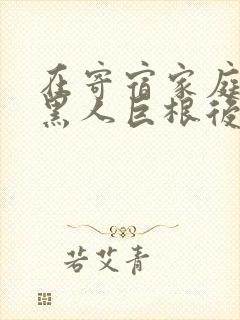 在寄宿家庭
黑人巨根彼
若艾青